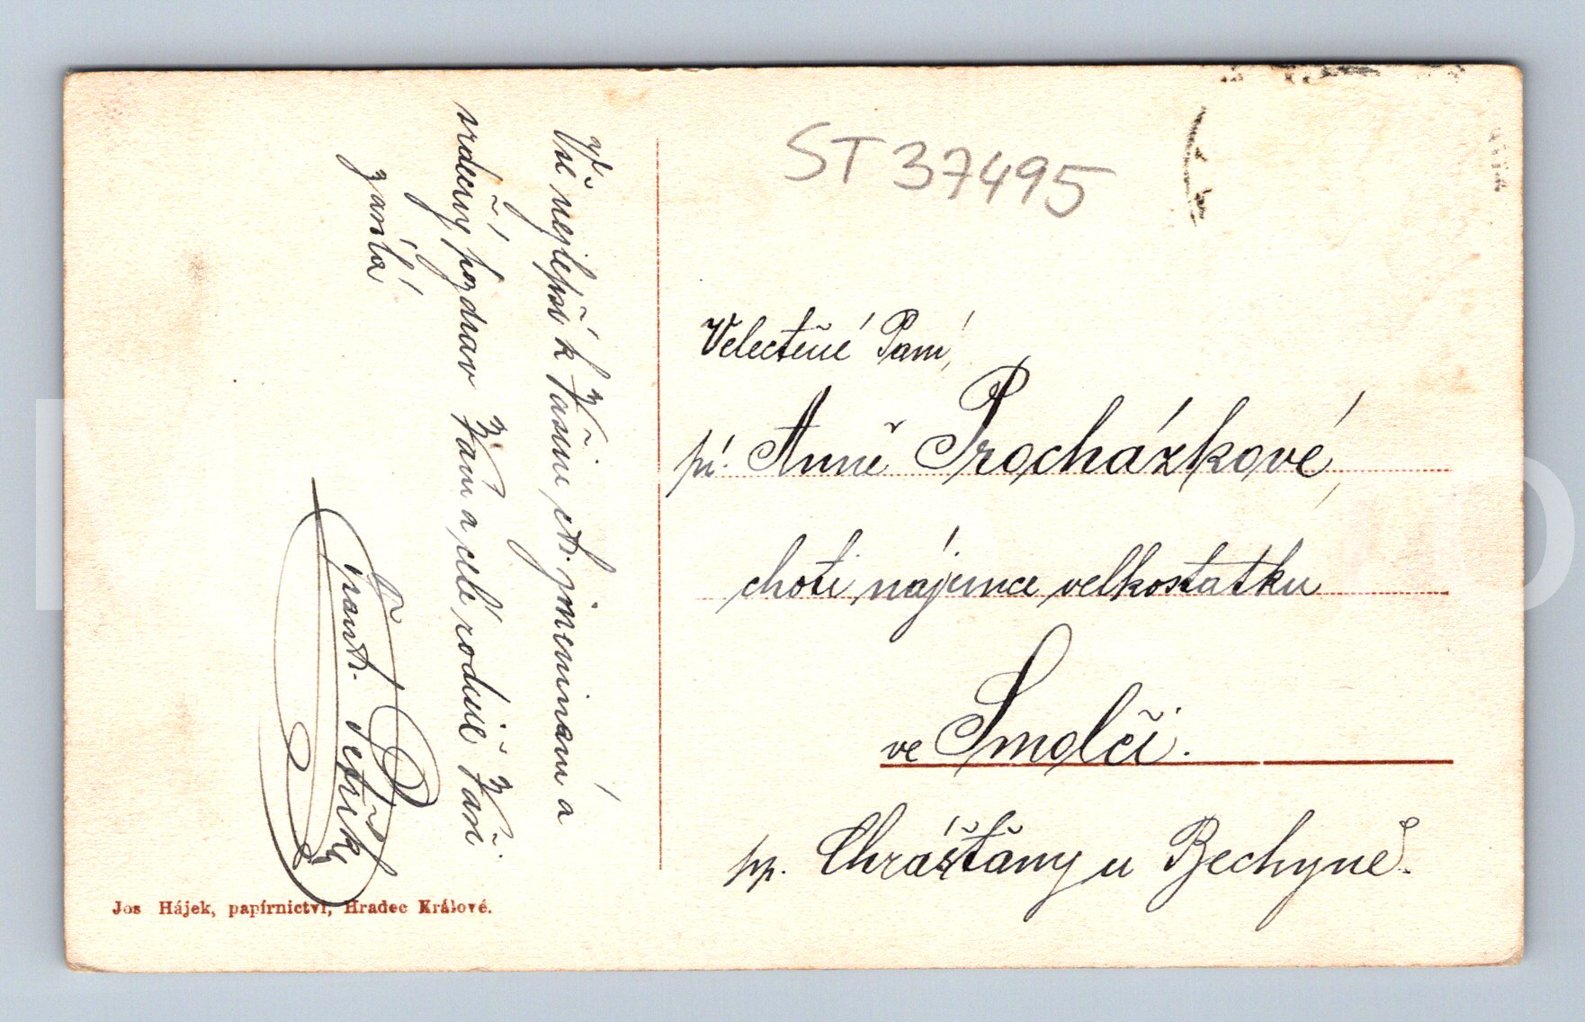 Vše nejlepší k Vašim ct. jmeninám a
srdečný pozdrav Vám a celé rodině Vaší
zasílá
frant. Petřík
ST 37495
Velectěné Paní,
pí. Anně Procházkové,
choti nájemce velkostatku
ve Smolči.
pp. Chrášťany u Bechyně.
Jos Hájek, papírnictví, Hradec Králové.